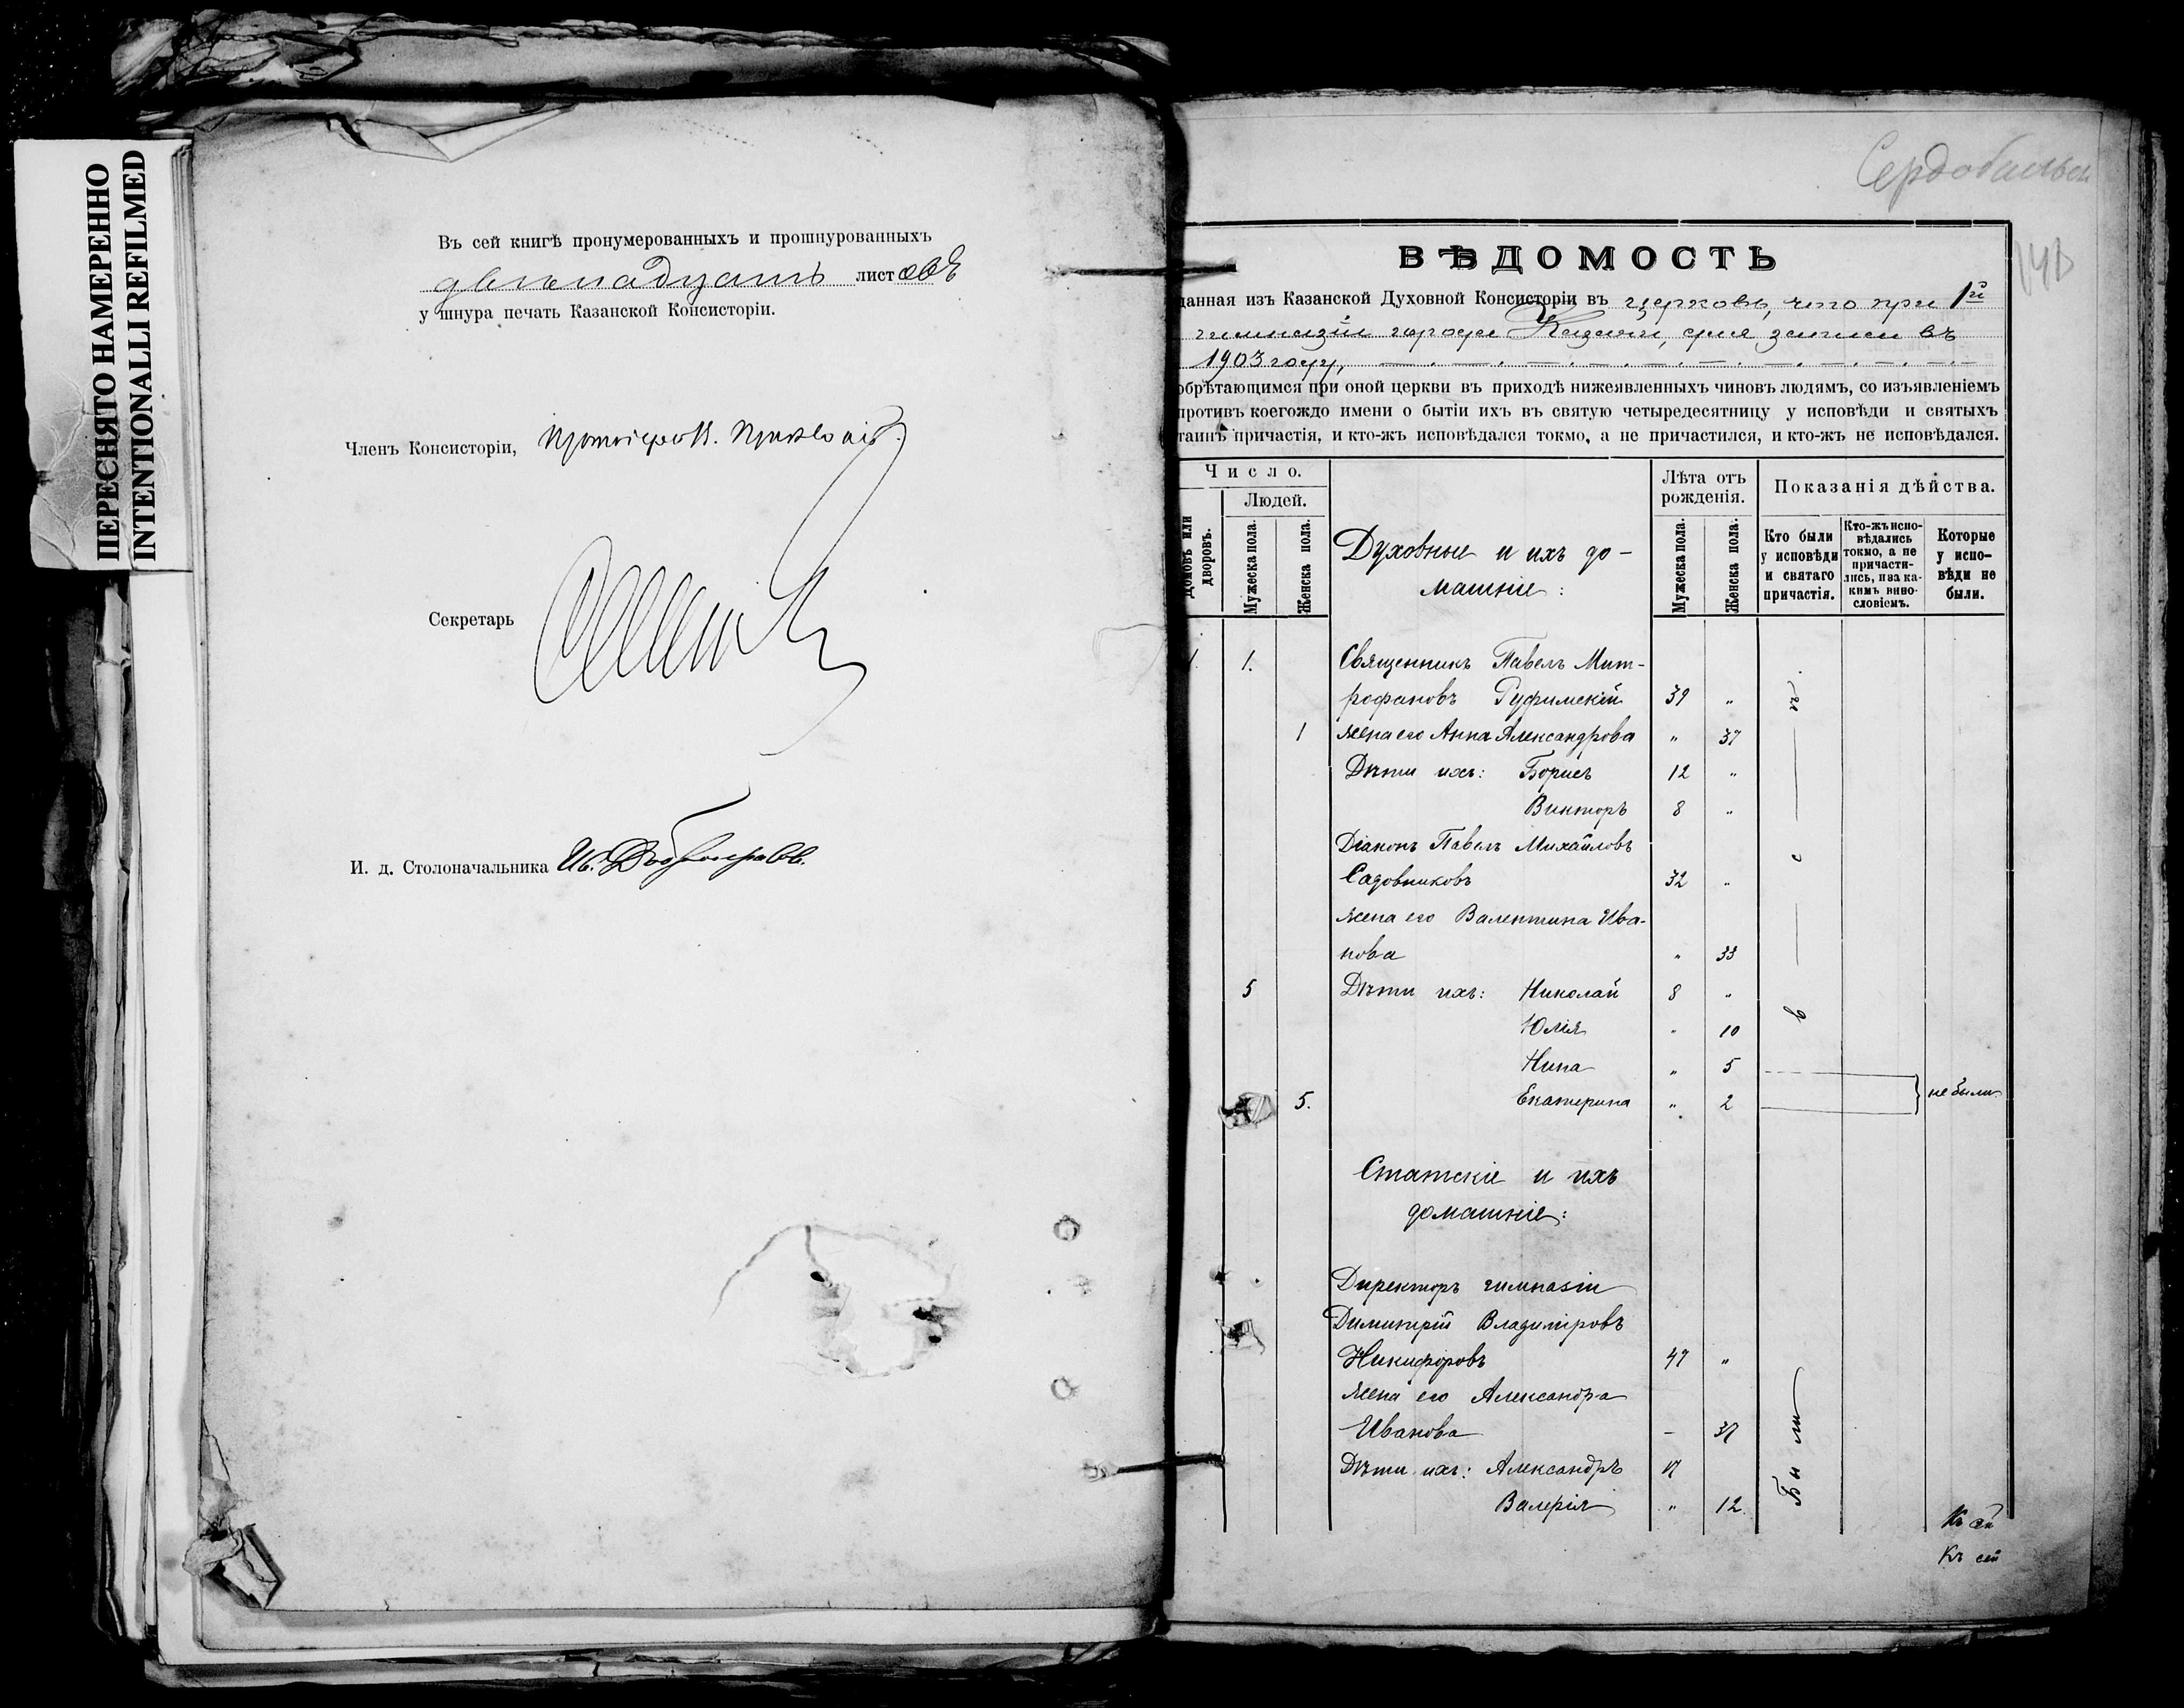 ПЕРЕСНЯТО НАМЕРЕННО
INTENTIONALLI REFILMED
Въ сей книгѣ пронумерованныхъ и прошнурованныхъ
двенадцать листовъ
у шнура печать Казанской Консисторіи.
Членъ Консисторіи,
Секретарь
И. д. Столоначальника Ив. Добронравовъ.
ВѢДОМОСТЬ
данная изъ Казанской Духовной Консисторіи въ церковь, что при 1й
гимназіи города Казани, для записи въ
1903 году,
обрѣтающимся при оной церкви въ приходѣ нижеявленныхъ чиновъ людямъ, со изъявленіемъ
противъ коегождо имени о бытіи ихъ въ святую четыредесятницу у исповѣди и святыхъ
таинъ причастія, и кто-жъ исповѣдался токмо, а не причастился, и кто-жъ не исповѣдался.
Число.
Людей.
Домовъ или дворовъ.
Мужеска пола.
Женска пола.
Духовные и ихъ до-
машніе:
Лѣта отъ рожденія.
Мужеска пола.
Женска пола.
Показанія дѣйства.
Кто были у исповѣди и святаго причастія.
Кто-жъ исповѣдались токмо, а не причастились, и за какимъ винословіемъ.
Которые у исповѣди не были.
1. 1. Священникъ Павелъ Мит-
рофановъ Руфимскій 39 "
1 жена его Анна Александрова " 37
Дѣти ихъ: Борисъ 12 "
Викторъ 8 "
Діаконъ Павелъ Михайловъ
Садовниковъ 32 "
жена его Валентина Ива-
нова " 33
5 Дѣти ихъ: Николай 8 "
Юлія " 10
Нина " 5
5. Екатерина " 2 не были
Статскіе и ихъ
домашніе:
Директоръ гимназіи
Димитрій Владиміровъ
Никифоровъ 47 "
жена его Александра
Иванова - 37
Дѣти ихъ: Александръ 17
Валерія " 12
Были
Къ сей
Къ сей